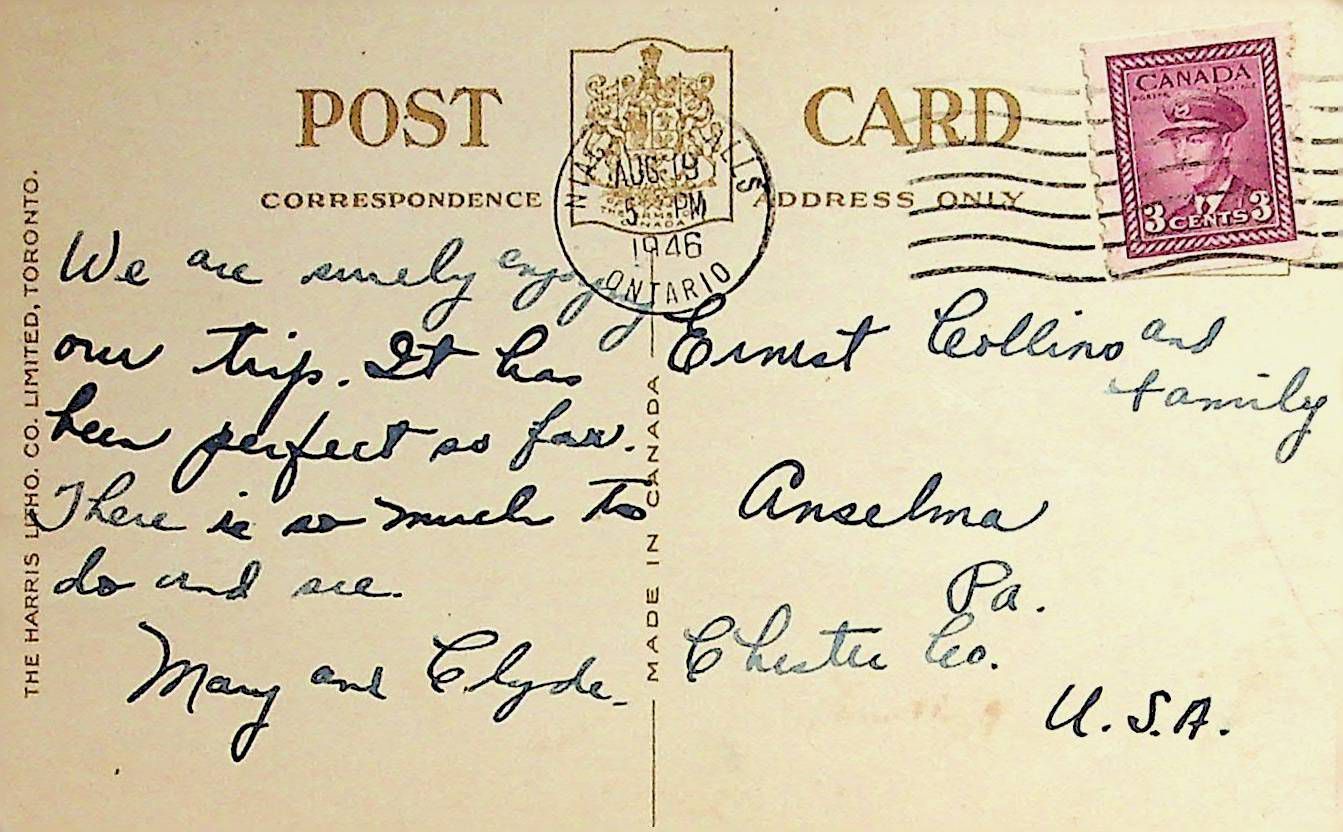 POST CARD
CORRESPONDENCE
ADDRESS ONLY
CANADA
POSTES POSTAGE
3 CENTS 3
NIAGARA FALLS
AUG 19
5 PM
1946
ONTARIO
THE HARRIS LITHO. CO. LIMITED, TORONTO.
We are surely enjoying
our trip. It has
been perfect so far.
There is so much to
do and see.
Mary and Clyde.
MADE IN CANADA
Ernest Collins and
family
Anselma
Pa.
Chester Co.
U.S.A.